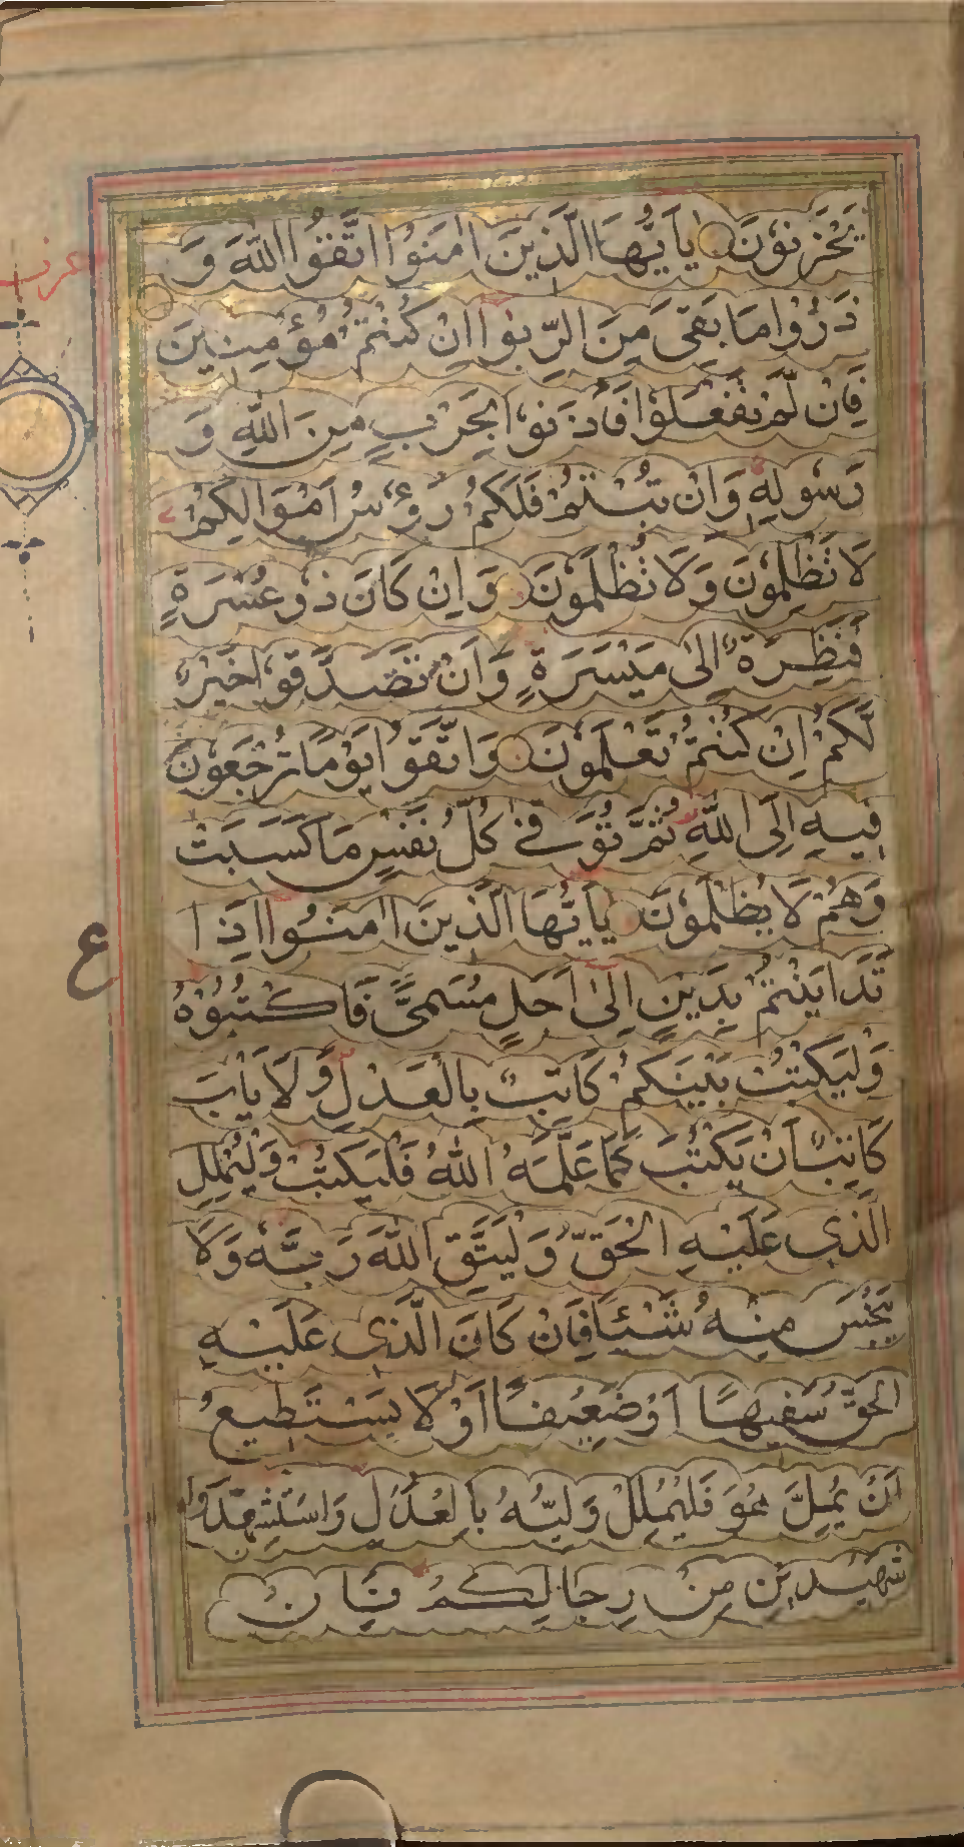 يَحْزَنُوْنَ يٰاَيُّهَا الَّذِيْنَ اٰمَنُوا اتَّقُوا اللّٰهَ وَ
ذَرُوْا مَا بَقِىَ مِنَ الرِّبٰوا اِنْ كُنْتُمْ مُؤْمِنِيْنَ
فَاِنْ لَّمْ تَفْعَلُوْا فَأْذَنُوْا بِحَرْبٍ مِنَ اللّٰهِ وَ
رَسُوْلِهٖ وَاِنْ تُبْتُمْ فَلَكُمْ رُءُوْسُ اَمْوَالِكُمْ
لَا تَظْلِمُوْنَ وَلَا تُظْلَمُوْنَ وَاِنْ كَانَ ذُوْ عُسْرَةٍ
فَنَظِرَةٌ اِلٰى مَيْسَرَةٍ وَاَنْ تَصَدَّقُوْا خَيْرٌ
لَّكُمْ اِنْ كُنْتُمْ تَعْلَمُوْنَ وَاتَّقُوْا يَوْمًا تُرْجَعُوْنَ
فِيْهِ اِلَى اللّٰهِ ثُمَّ تُوَفّٰى كُلُّ نَفْسٍ مَا كَسَبَتْ
وَهُمْ لَا يُظْلَمُوْنَ يٰاَيُّهَا الَّذِيْنَ اٰمَنُوْا اِذَا
تَدَايَنْتُمْ بِدَيْنٍ اِلٰى اَجَلٍ مُسَمًّى فَاكْتُبُوْهُ
وَلْيَكْتُبْ بَيْنَكُمْ كَاتِبٌ بِالْعَدْلِ وَلَا يَأْبَ
كَاتِبٌ اَنْ يَكْتُبَ كَمَا عَلَّمَهُ اللّٰهُ فَلْيَكْتُبْ وَلْيُمْلِلِ
الَّذِى عَلَيْهِ الْحَقُّ وَلْيَتَّقِ اللّٰهَ رَبَّهٗ وَلَا
يَبْخَسْ مِنْهُ شَيْئًا فَاِنْ كَانَ الَّذِى عَلَيْهِ
الْحَقُّ سَفِيْهًا اَوْ ضَعِيْفًا اَوْ لَا يَسْتَطِيْعُ
اَنْ يُمِلَّ هُوَ فَلْيُمْلِلْ وَلِيُّهٗ بِالْعَدْلِ وَاسْتَشْهِدُوْا
شَهِيْدَيْنِ مِنْ رِجَالِكُمْ فَاِنْ
ع